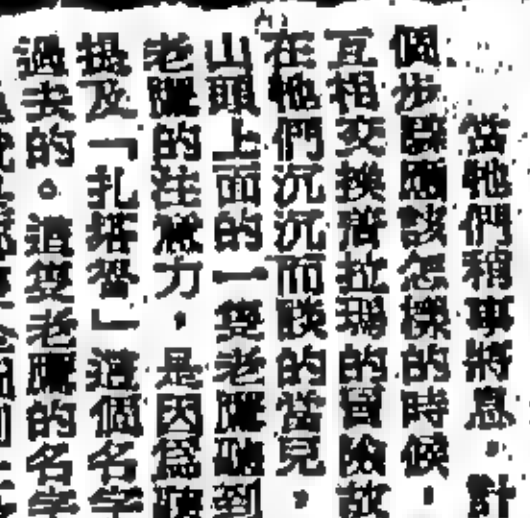 當牠們稍事將息，計
個步驟應該怎樣的時候，
互相交換着拉瑪的冒險故
在牠們沉沉而談的當兒，
山頭上面的一隻老鷹聽到
老鷹的注意力，是因爲聽
提及「扎塔智」這個名字
過去的。這隻老鷹的名字